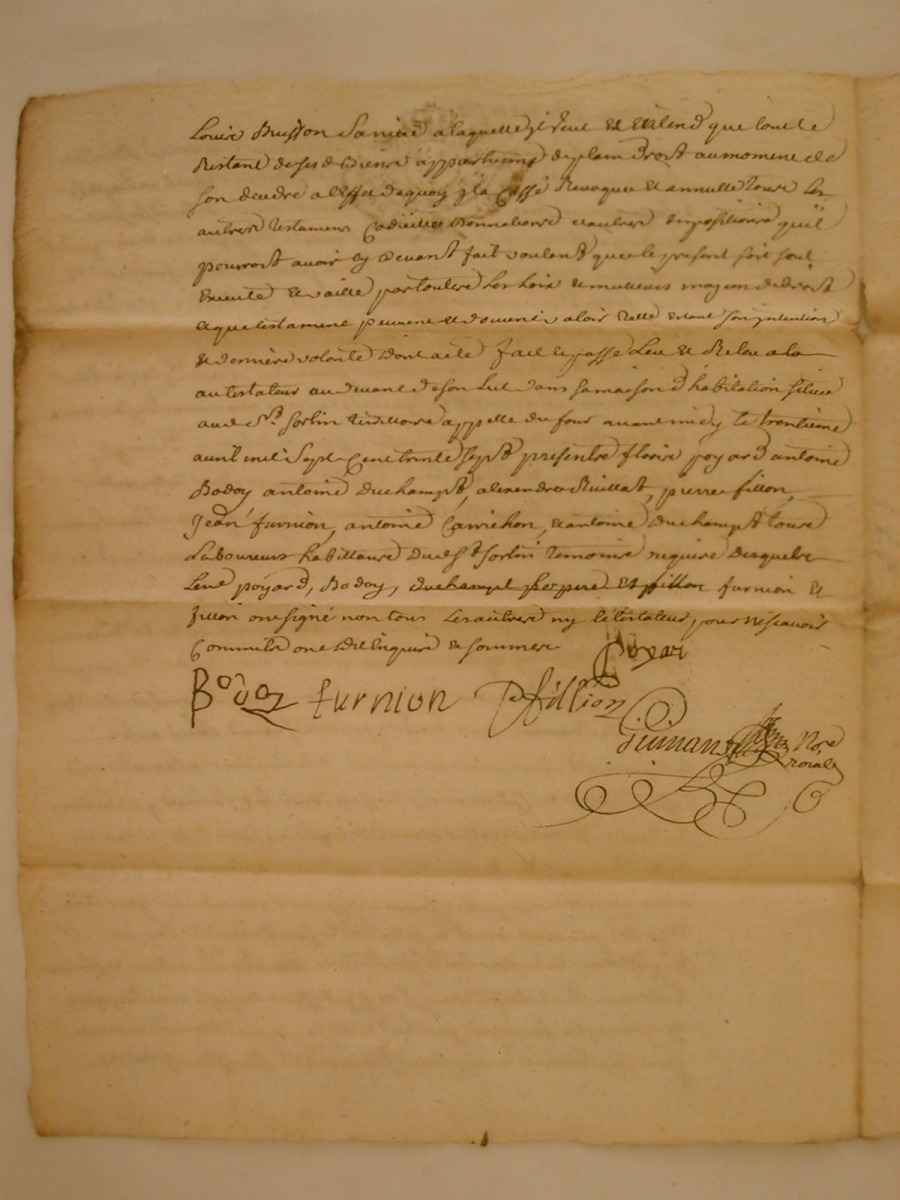 Louise Buisson Sa niece a laquelle il veut et entend que tout le
Restant de ses d biens appartienne de plain droit au moment de
son deceds a l'effet de quoy il a Cassé Revoque et annulle tous les
autres testamens Codicilles donnations et autres dispositions qu'il
pourroit avoir cy devant fait voulant que le present soit seul
execute et vaille par toutes les voix et meilleurs moyen de droit
et que testament peuvent et doivent valoir telle etant son intention
et derniere volonté dont acte fait et passé Leu et Releu a
au testateur au devant de son lict dans sa maison d'habitation situee
aud St Sorlin appelle du four avant midy le trentieme
avril mil Sept Cent trente sept presents fleurie poyard antoine
Bodoy antoine Duchampt, alexendre Ruillat, pierre fillon,
Jean furnion, antoine Carrichon, et antoine Duchampt tous
Laboureurs habittans dud St Sorlin temoins requis desquels
Led poyard, Bodoy, et fillon furnion et
ont signé non tous Les autres ny le testateur, pour ne scavoir
Comm'ils ont dit Enquis et sommes
poyar
Bodoy furnion P fillion
Guinand Nore
roial